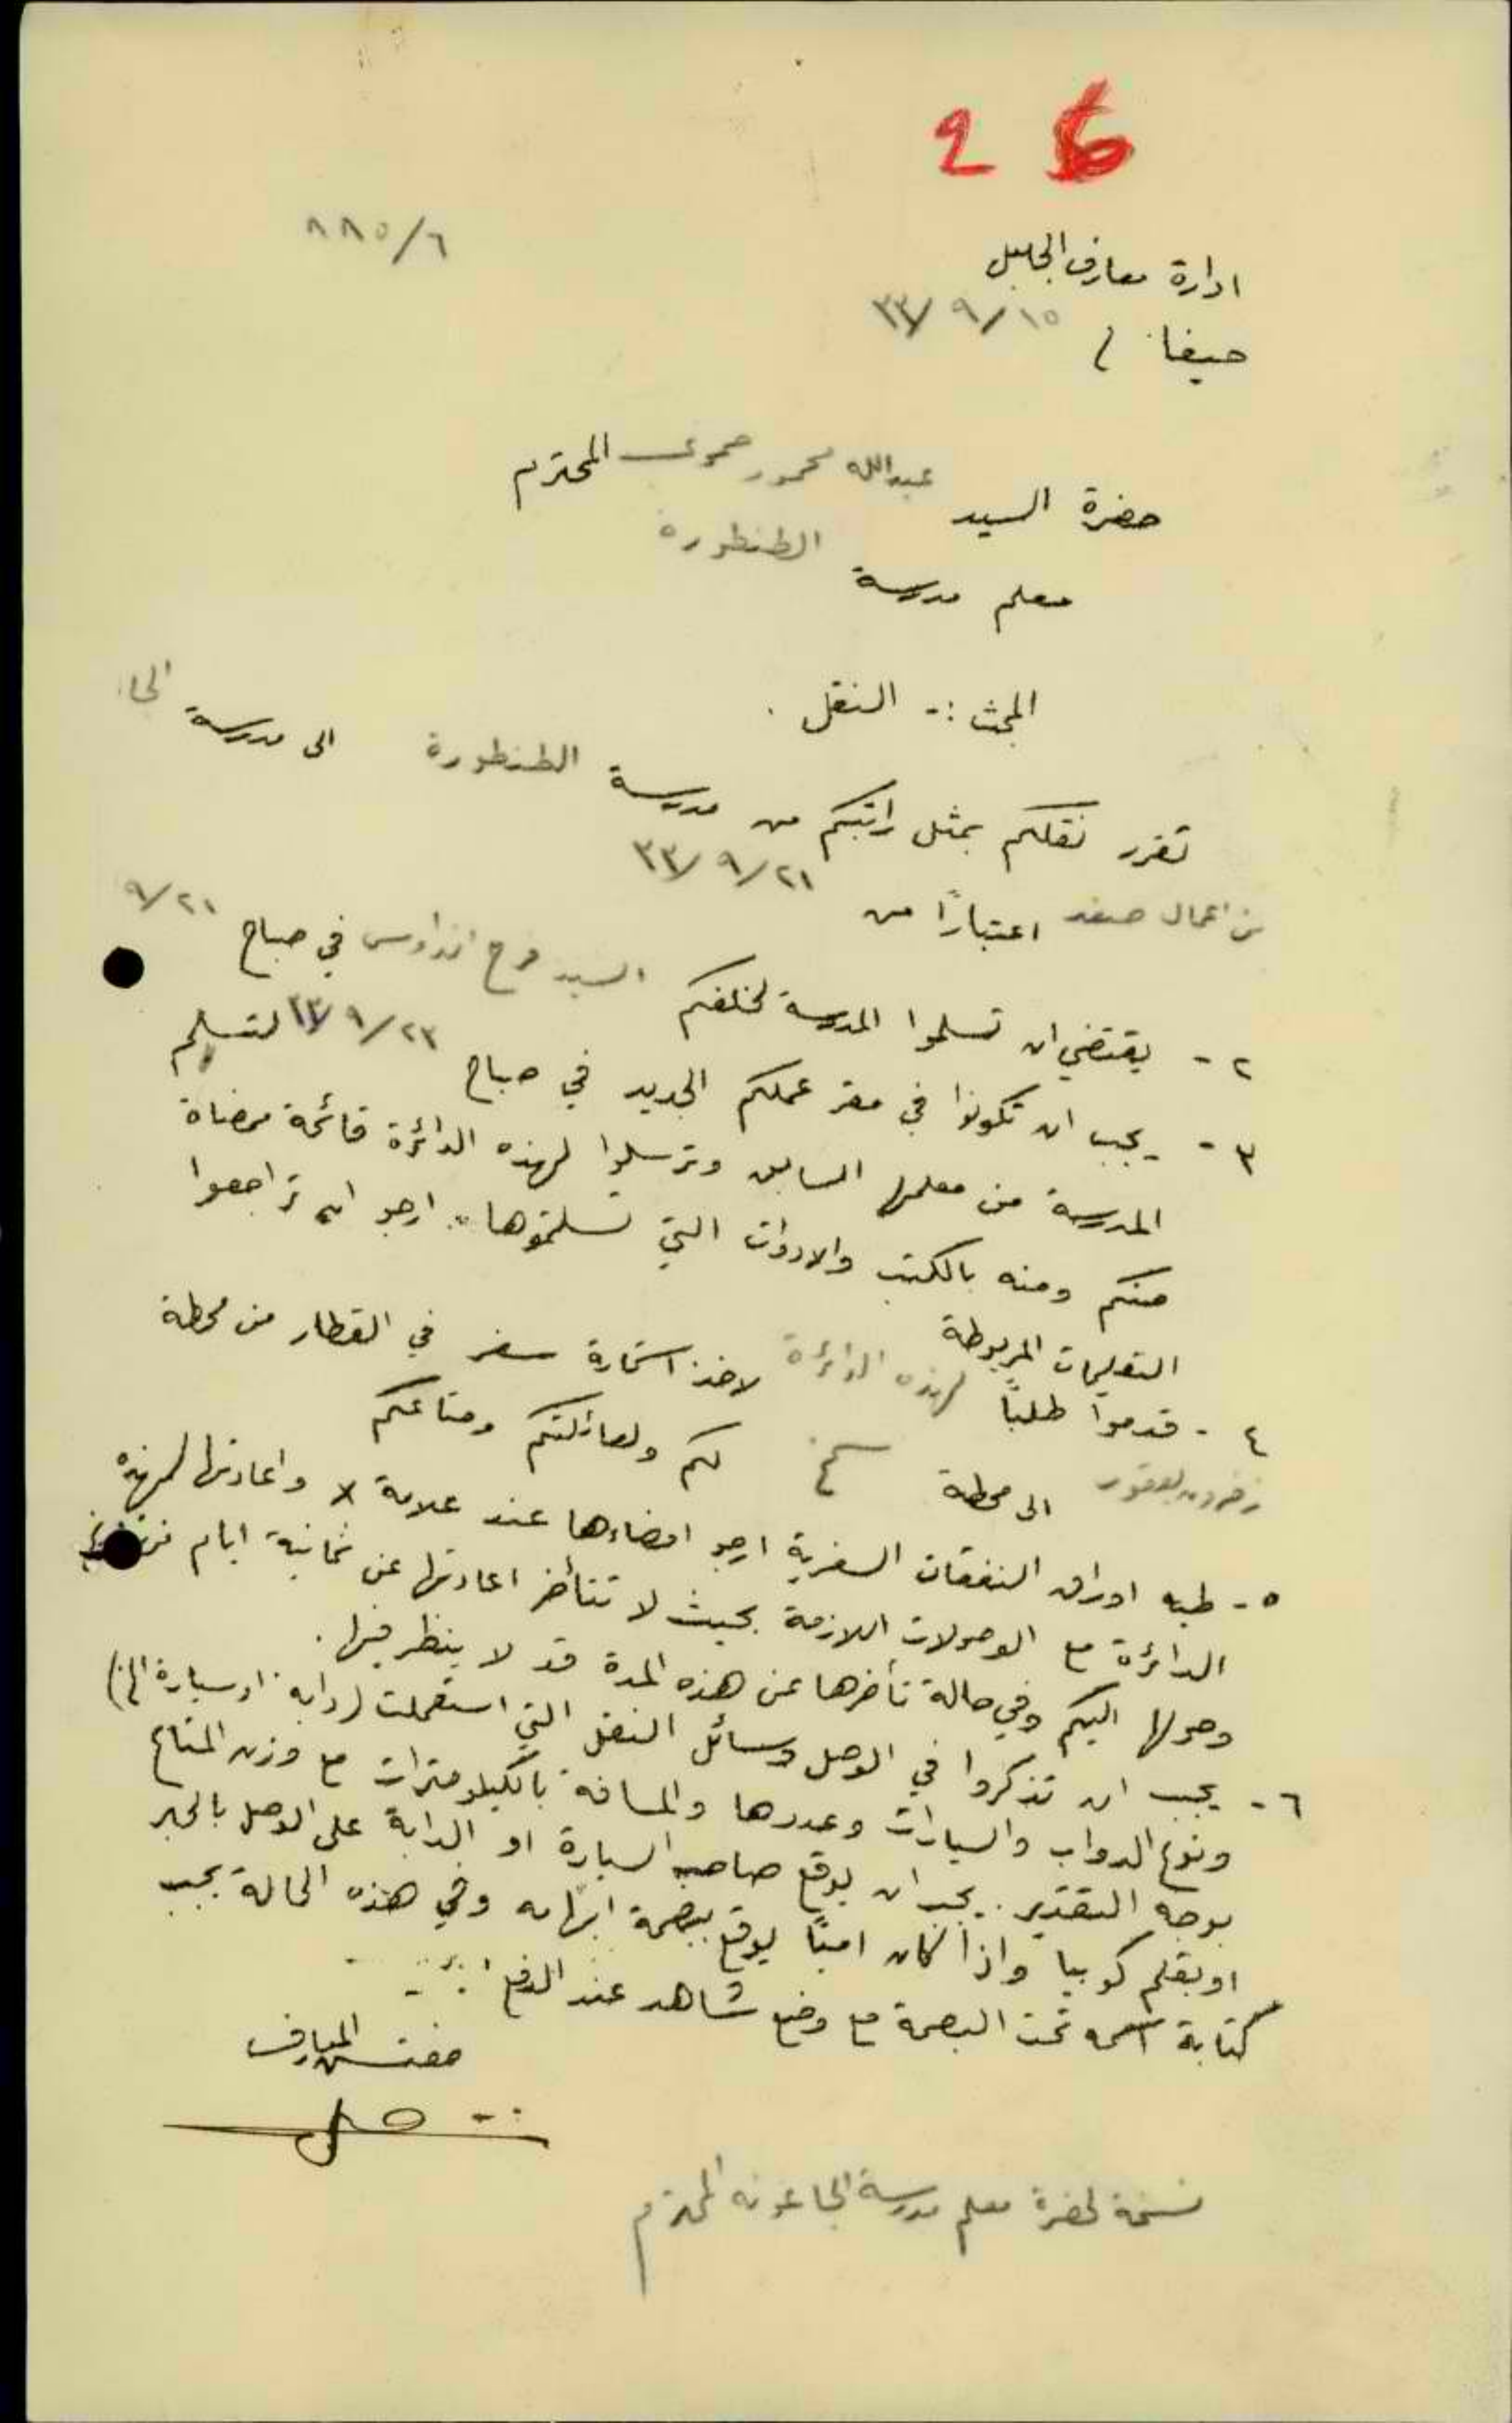 26
٨٨٥/٦
ادارة معارف الجليل
حيفا / ١٥/ ٩/ ٣٣
حضرة السيد عبدالله محمود حموي المحترم
معلم مدرسة الطنطورة
المبحث :- النقل .
تقرر نقلكم بمثل راتبكم من مدرسة الطنطورة الى مدرسة
من اعمال صفد اعتبارًا من ٢١/ ٩/ ٣٣
٢ - يقتضي ان تسلموا المدرسة لخلفكم السيد فرح في صباح ٢١/ ٩
٣ - يجب ان تكونوا في مقر عملكم الجديد في صباح ٢٣/ ٩/ ٣٣ لتسلم
المدرسة من معلمها السابق وترسلوا لهذه الدائرة قائمة ممضاة
منكم ومنه بالكتب والادوات التي تسلمتموها . ارجو ان تراجعوا
التعليمات المربوطة
٤ - قدموا طلبًا لهذه الدائرة لاخذ استمارة سفر في القطار من محطة
زخرون يعقوب الى محطة سمخ لكم ولعائلتكم ومتاعكم
٥ - طيه اوراق النفقات السفرية ارجو امضاءها عند علامة x واعادتها لهذه
الدائرة مع الوصولات اللازمة بحيث لا تتأخر اعادتها عن ثمانية ايام من
وصولها اليكم وفي حالة تأخرها عن هذه المدة قد لا ينظر فيها .
٦ - يجب ان تذكروا في الوصل وسائل النقل التي استعملت (دابة او سيارة الخ)
ونوع الدواب والسيارات وعددها والمسافة بالكيلومترات مع وزن المتاع
بوجه التقدير . يجب ان يوقع صاحب السيارة او الدابة على الوصل بالحبر
او بقلم كوبيا واذا كان اميًا يوقع ببصمة ابهامه وفي هذه الحالة يجب
كتابة اسمه تحت البصمة مع وضع شاهد عند الدفع
مفتش المعارف
نسخة لحضرة معلم مدرسة الجاعونه المحترم